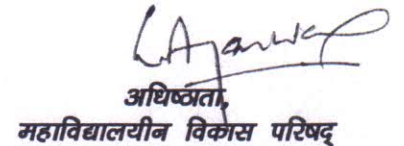 अधिष्ठाता,
महाविद्यालयीन विकास परिषद्